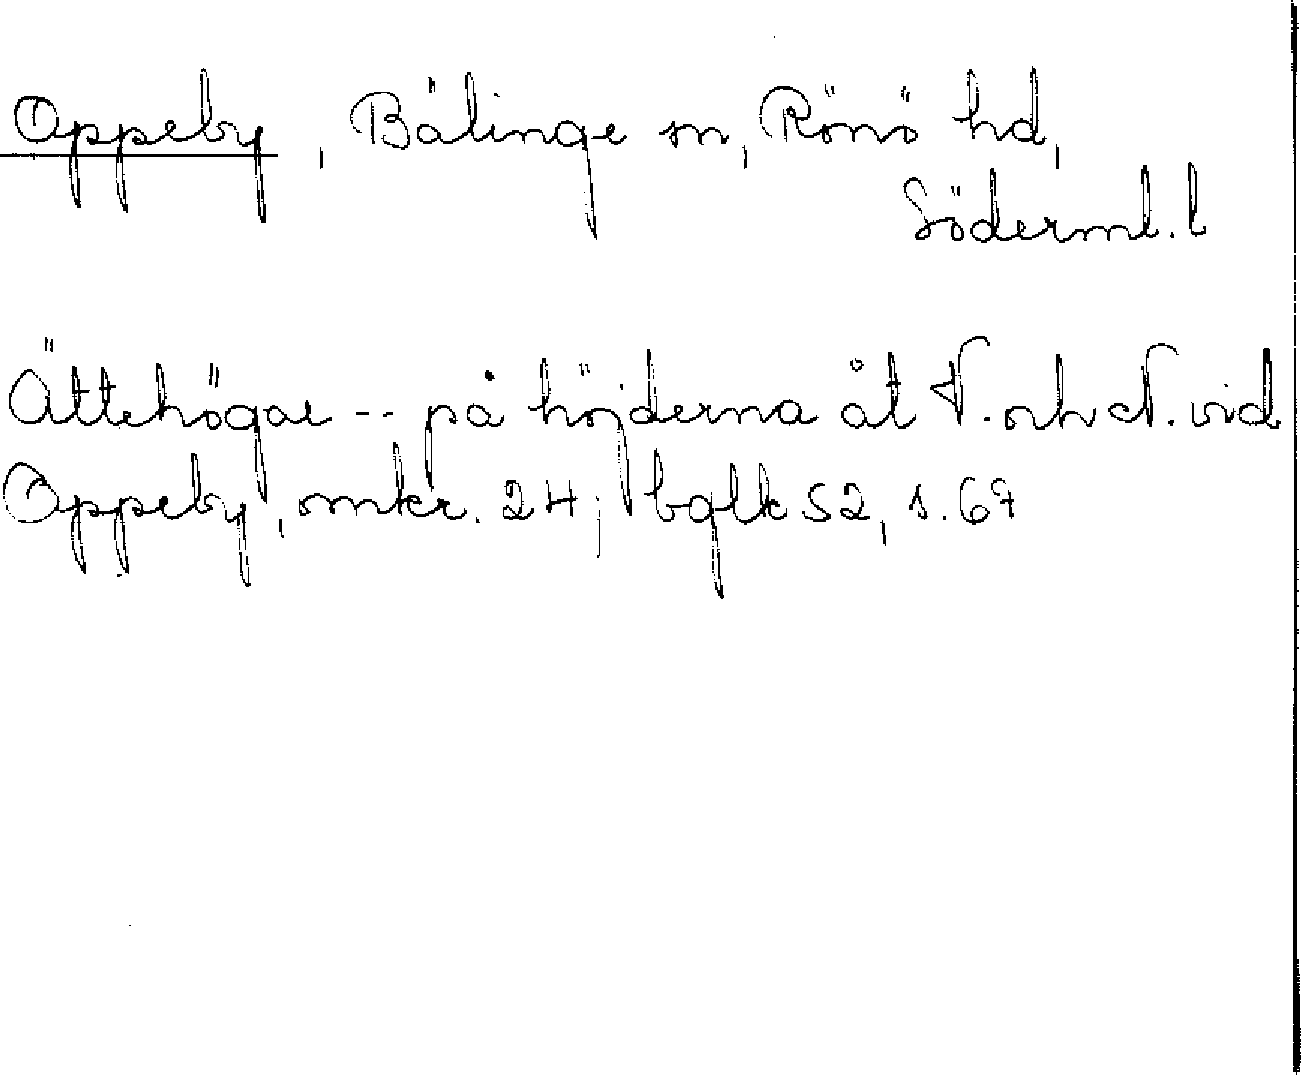 Oppeby, Bälinge sn, Rönö hd,
Söderml. l
Ättehögar -- på höjderna åt V. och N. vid
Oppeby, omkr. 24; bglk 52, s. 67